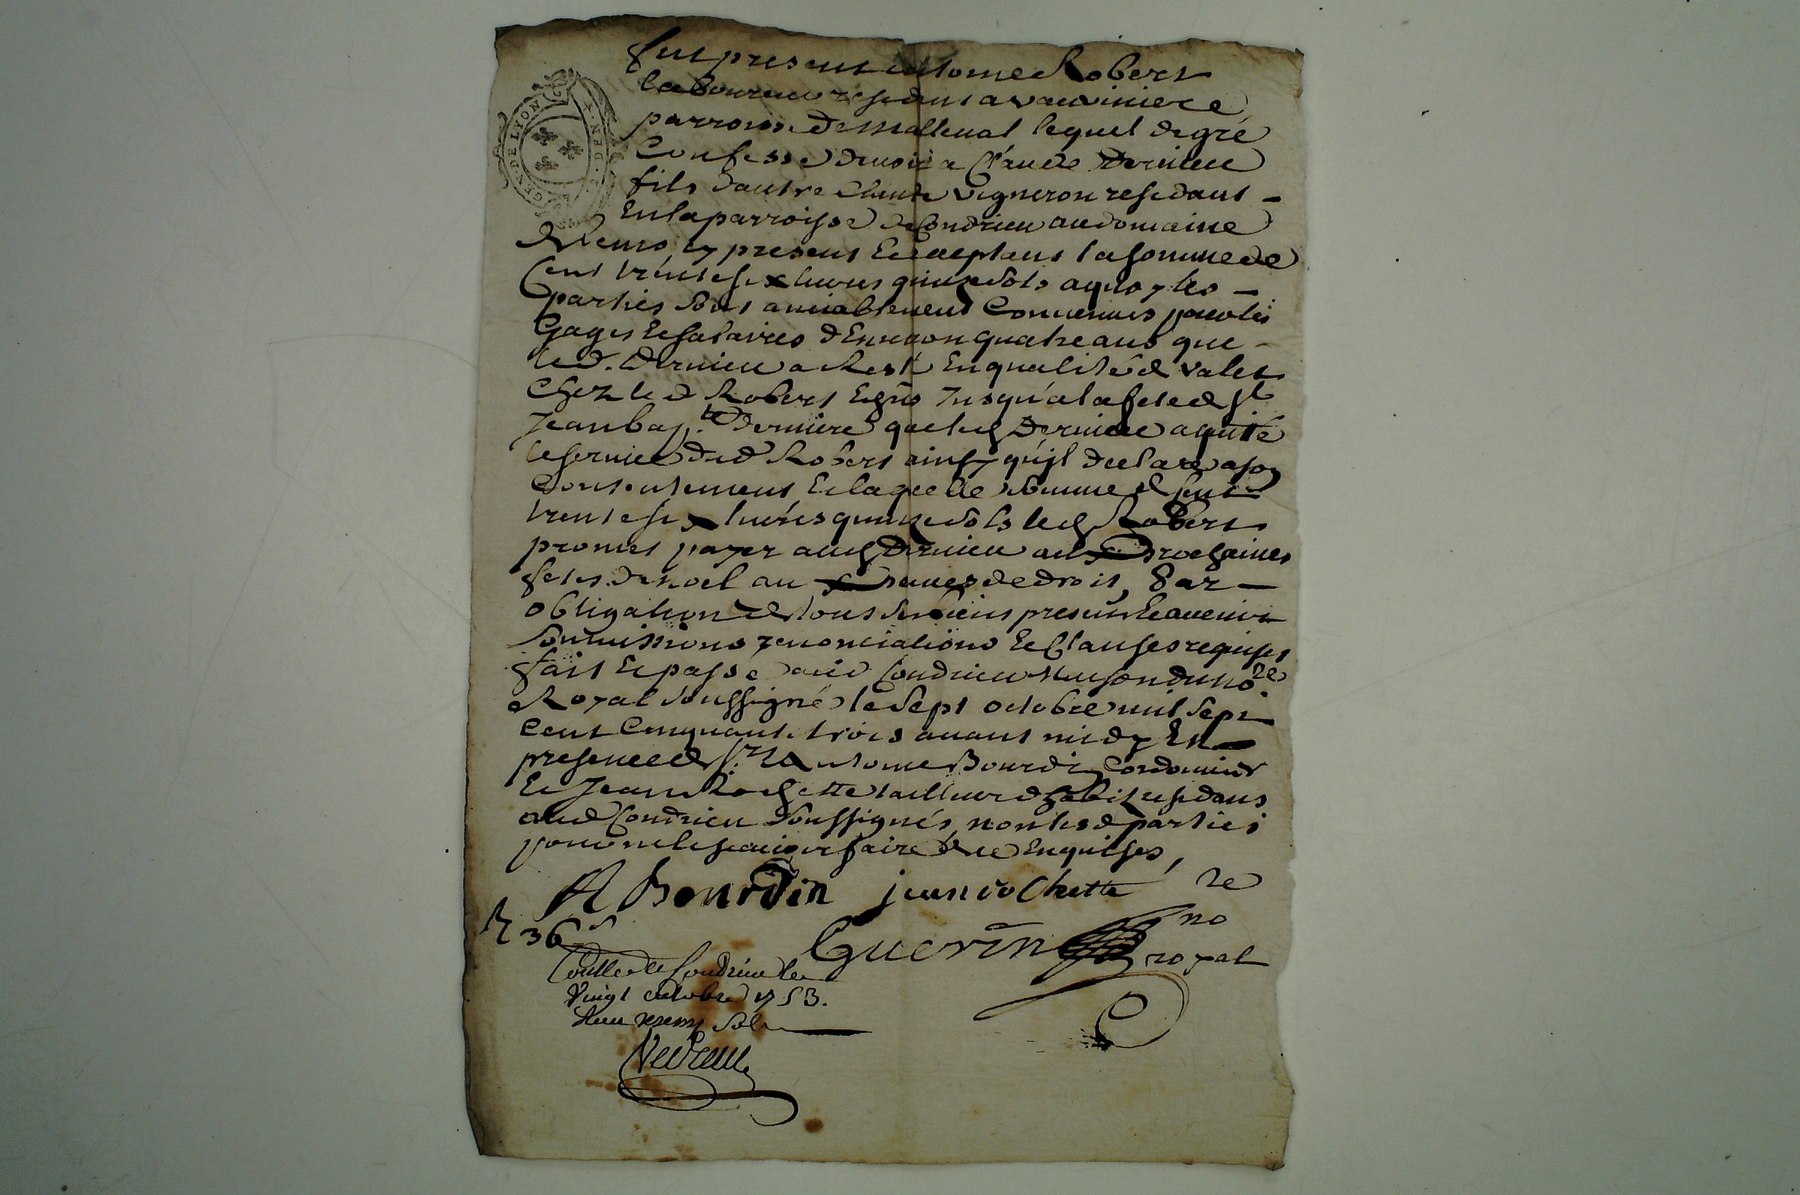 GEN. DE LYON
fut present antoine Robert
laboureur residant a vauviniere
parroisse de Malleval lequel de gré
Confesse devoir a Claude Dervieu
fils d'autre Claude vigneron residant
En la parroisse de Condrieu au domaine
present Et aceptant la somme de
Cent trente six livres quinze sols a quoy les
parties sont amiablement Convenues pour les
Gages Et salaires d'Environ quatre ans que
led. Dervieu a Resté En qualité de valet
Chez le d Robert Echus Jusqu'a la fete de st
Jean bapte. derniere que led Dervieu a quitté
le service dud Robert ainsy qu'jl declare a son
Contentement Et laquelle somme de Cent
trente six livres quinze sols led Robert
promet payer aud Dervieu aux prochaines
fetes de noel aux peines de droit, Par
obligation de tous ses biens presents Et avenir
soumissions renonciations Et Clauses requises
fait Et passé aud Condrieu Maison du nore.
Royal soussigné le sept octobre mil sept
cent Cinquante trois avant midy En
presence de sr. Antoine Bourdin Cordonnier
Et Jean Rochette tailleur d'habit residans
aud Condrieu soussignés, non lesd parties
pour ne le scavoir faire de ce Enquises,
A Bourdin jean rochette
R 36 s
Guerin nore royal
Conllé a Condrieu le
Vingt octobre 1753.
Reçu sols